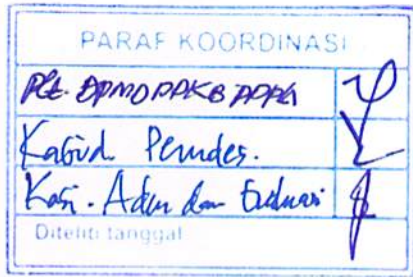 PARAF KOORDINASI
Plt. DPMD PPKB PPPA
Kabid. Pemdes.
Kasi. Adm dan Evaluasi
Diteliti tanggal